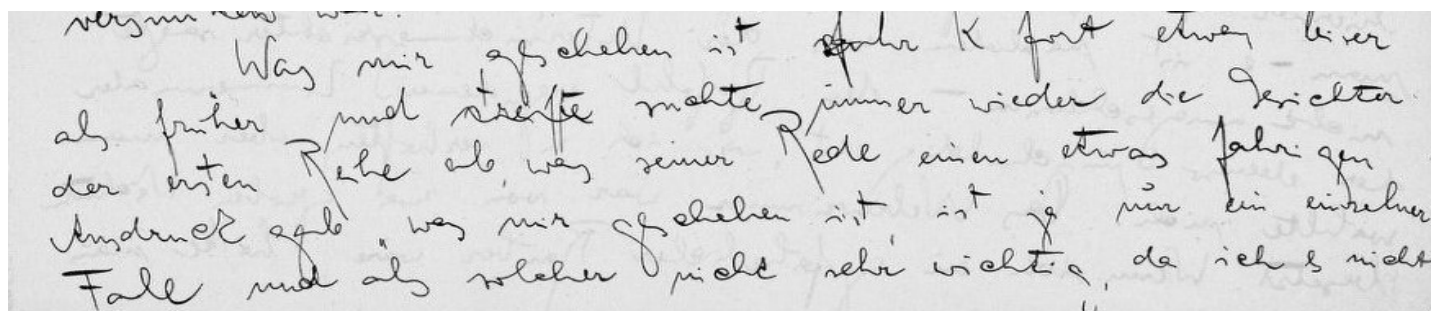 versunken war.
Was mir geschehen ist fuhr K fort etwas leiser
als früher und streifte suchte immer wieder die Gesichter
der ersten Reihe ab, was seiner Rede einen etwas fahrigen
Ausdruck gab, "was mir geschehen ist, ist ja nur ein einzelner
Fall und als solcher nicht sehr wichtig, da ich es nicht